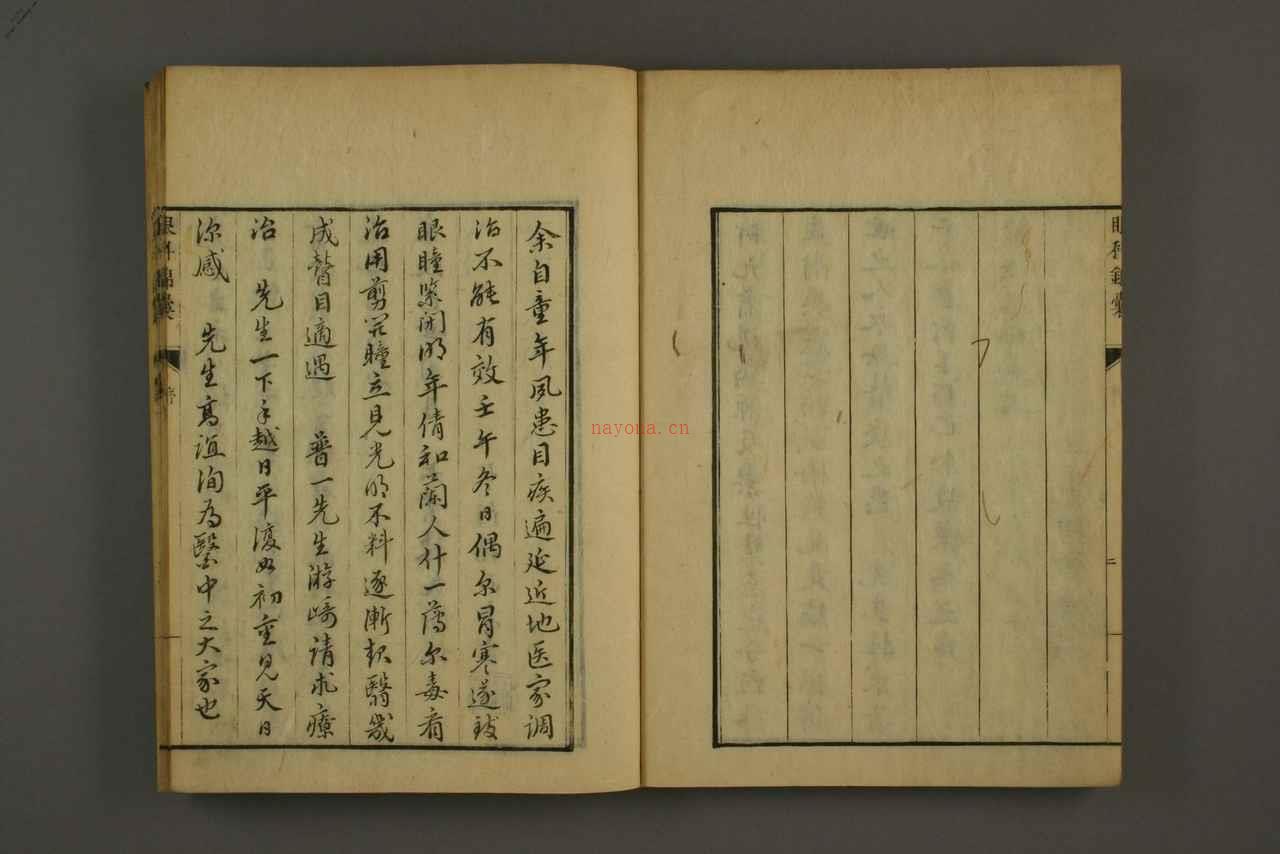 眼科錦囊
余自童年夙患目疾遍延近地医家调
治不能有效壬午冬日偶尔冒寒遂致
眼瞳紧闭明年倩和蘭人什一薄尔毒看
治用剪開瞳立见光明不料逐漸起翳幾
成瞽目適遇 普一先生游崎请求療
治 先生一下手越日平復如初重见天日
深感 先生高谊洵為醫中之大家也
眼科錦囊 序
nayona.cn